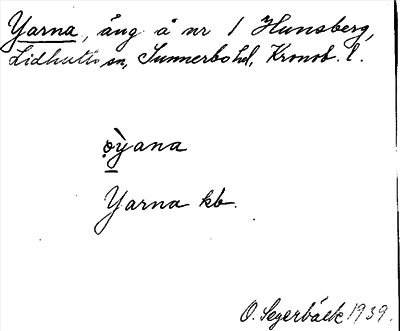 Yarna, äng å nr 1 Hunsberg,
Lidhults sn, Sunnerbo hd, Kronob. l.
o̤ỳana
Yarna kb.
O. Segerbäck 1939.